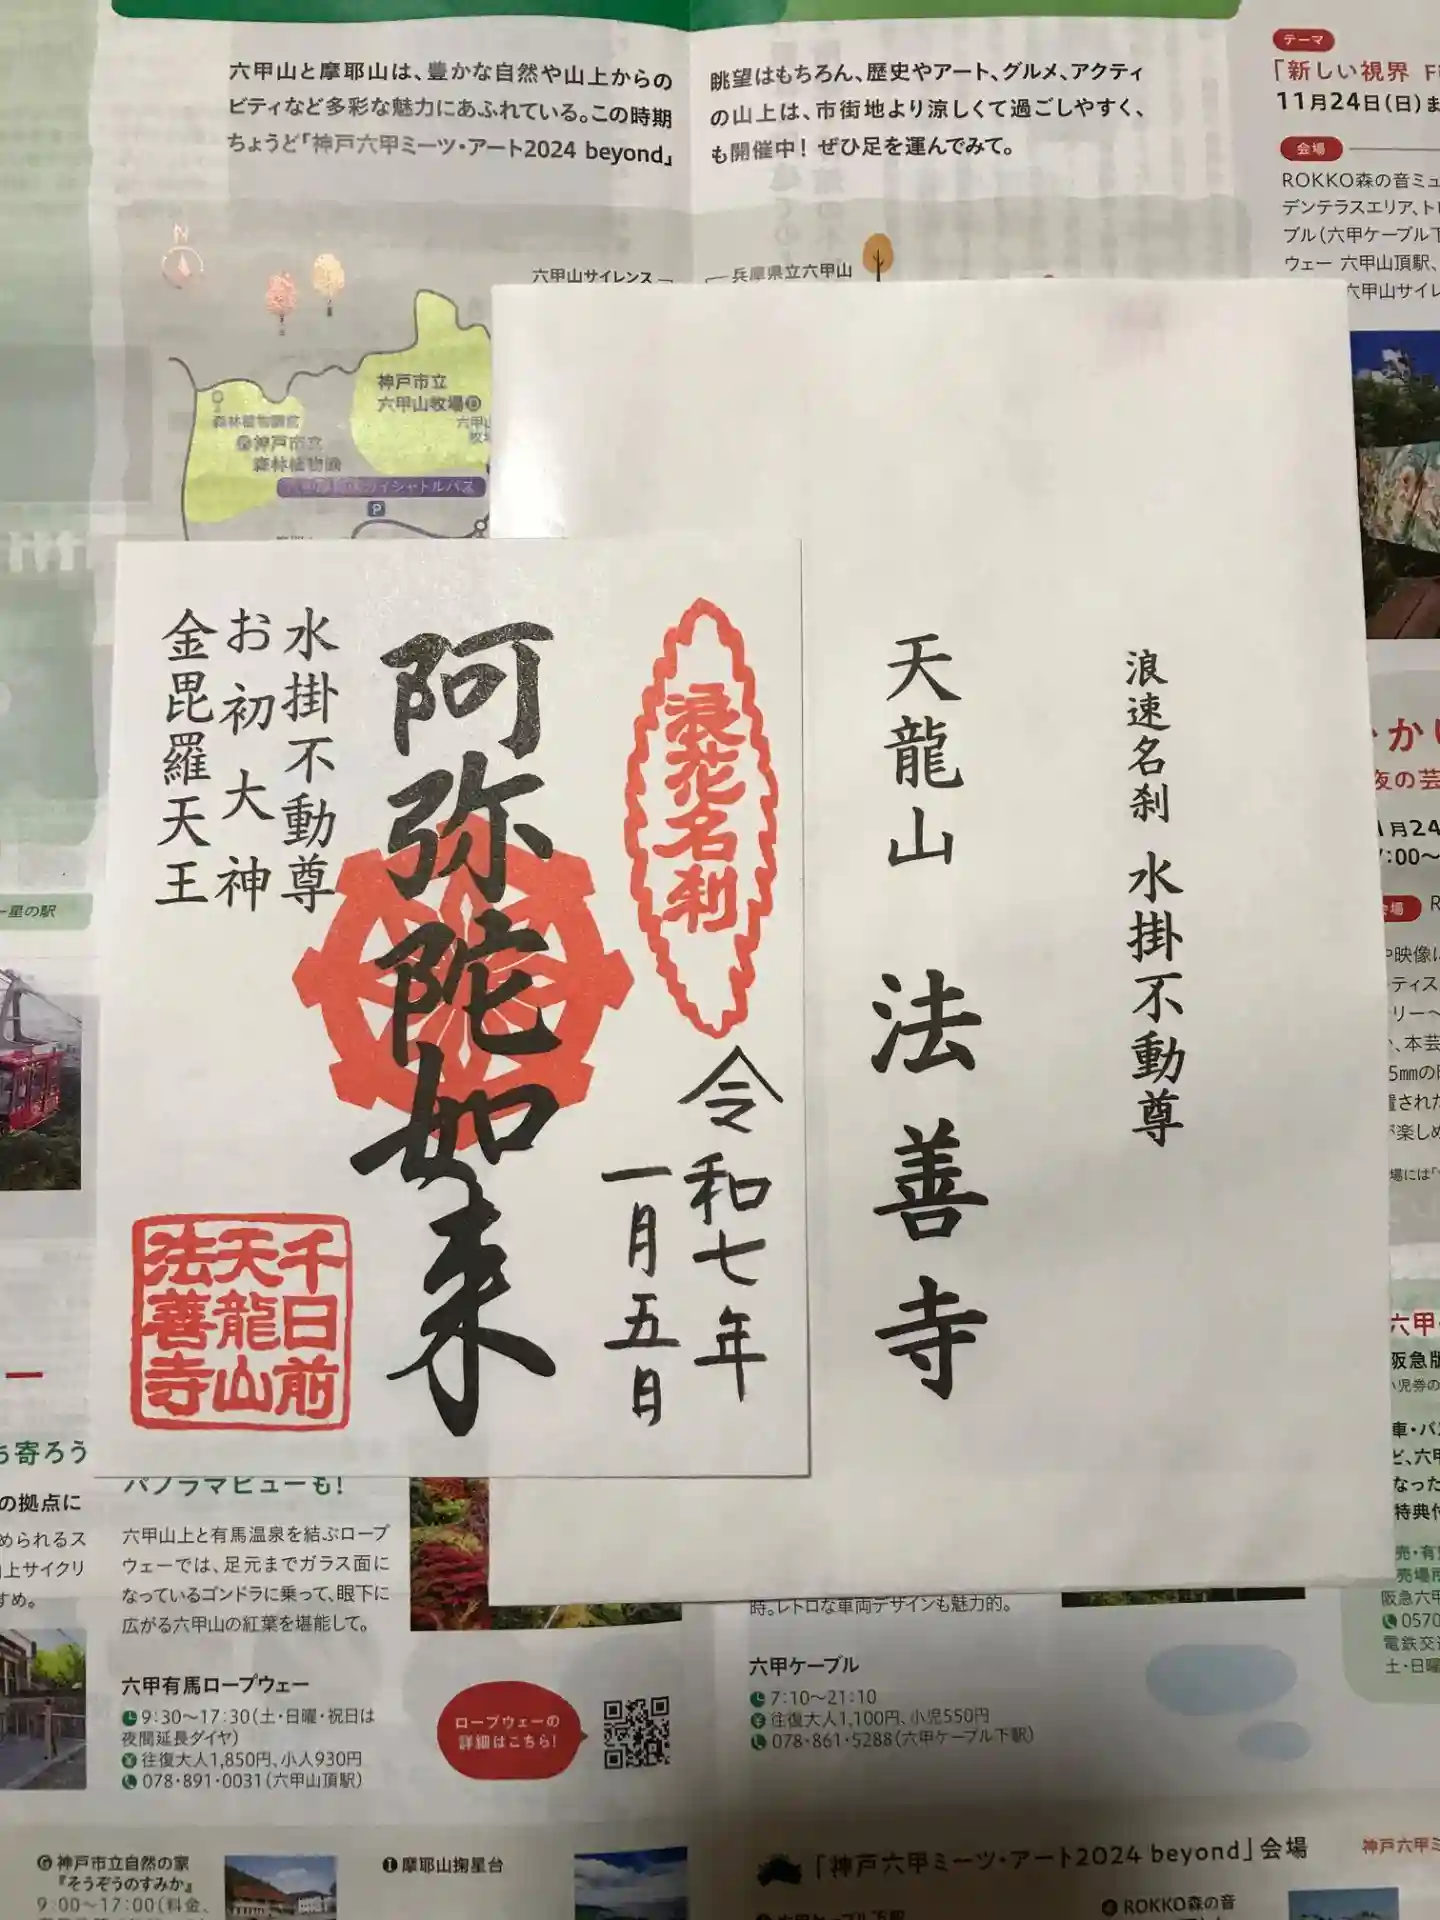 六甲山と摩耶山は、豊かな自然や山上からの
眺望はもちろん、歴史やアート、グルメ、アクティ
ビティなど多彩な魅力にあふれている。この時期
の山上は、市街地より涼しくて過ごしやすく、
ちょうど「神戸六甲ミーツ・アート2024 beyond」
も開催中! ぜひ足を運んでみて。
テーマ
「新しい視界
11月24日(日)ま
会場
ROKKO森の音ミュ
デンテラスエリア、ト
ブル(六甲ケーブル下
ウェー 六甲山頂駅、
六甲山サイレ
N
六甲山サイレンス
兵庫県立六甲山
神戸市立
六甲山牧場
神戸市立
森林植物園
P
浪速名刹 水掛不動尊
天龍山 法善寺
浪花名刹
令和七年
一月五日
阿弥陀如来
水掛不動尊
お初大神
金毘羅天王
千日前
天龍山
法善寺
かい
夜の芸
月24
:00～
会場
や映像に
ティス
リーへ
、本芸
5mmの
置された
が楽しめ
星の駅
ち寄ろう
の拠点に
められるス
上サイクリ
すめ。
パノラマビューも!
六甲山上と有馬温泉を結ぶロープ
ウェーでは、足元までガラス面に
なっているゴンドラに乗って、眼下に
広がる六甲山の紅葉を堪能して。
六甲有馬ロープウェー
9:30～17:30(土・日曜・祝日は
夜間延長ダイヤ)
往復大人1,850円、小人930円
078・891・0031(六甲山頂駅)
ロープウェーの
詳細はこちら!
時。レトロな車両デザインも魅力的。
六甲ケーブル
7:10～21:10
往復大人1,100円、小児550円
078・861・5288(六甲ケーブル下駅)
六甲
阪急版
小児券の
車・バス
ど、六甲
なった
特典付
売・有
売場所
阪急六甲
0570
電鉄交
土・日曜
G 神戸市立自然の家
『そうぞうのすみか』
9:00～17:00(料金、
I 摩耶山掬星台
「神戸六甲ミーツ・アート2024 beyond」会場
神戸六甲ミ
ROKKO森の音